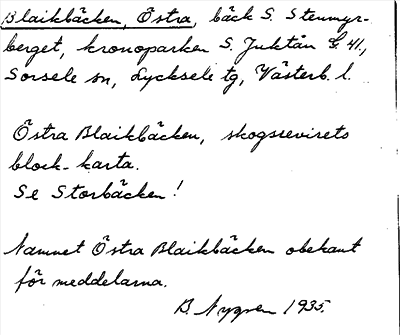 Blaikbäcken, Östra, bäck S. Stenmyr-
berget, kronoparken S. Juktån
Sorsele sn, Lycksele tg, Västerb. l.
Östra Blaikbäcken, skogsrevirets
block-karta.
Se Storbäcken!
Namnet Östra Blaikbäcken obekant
för meddelarna.
B. Nygren 1935.